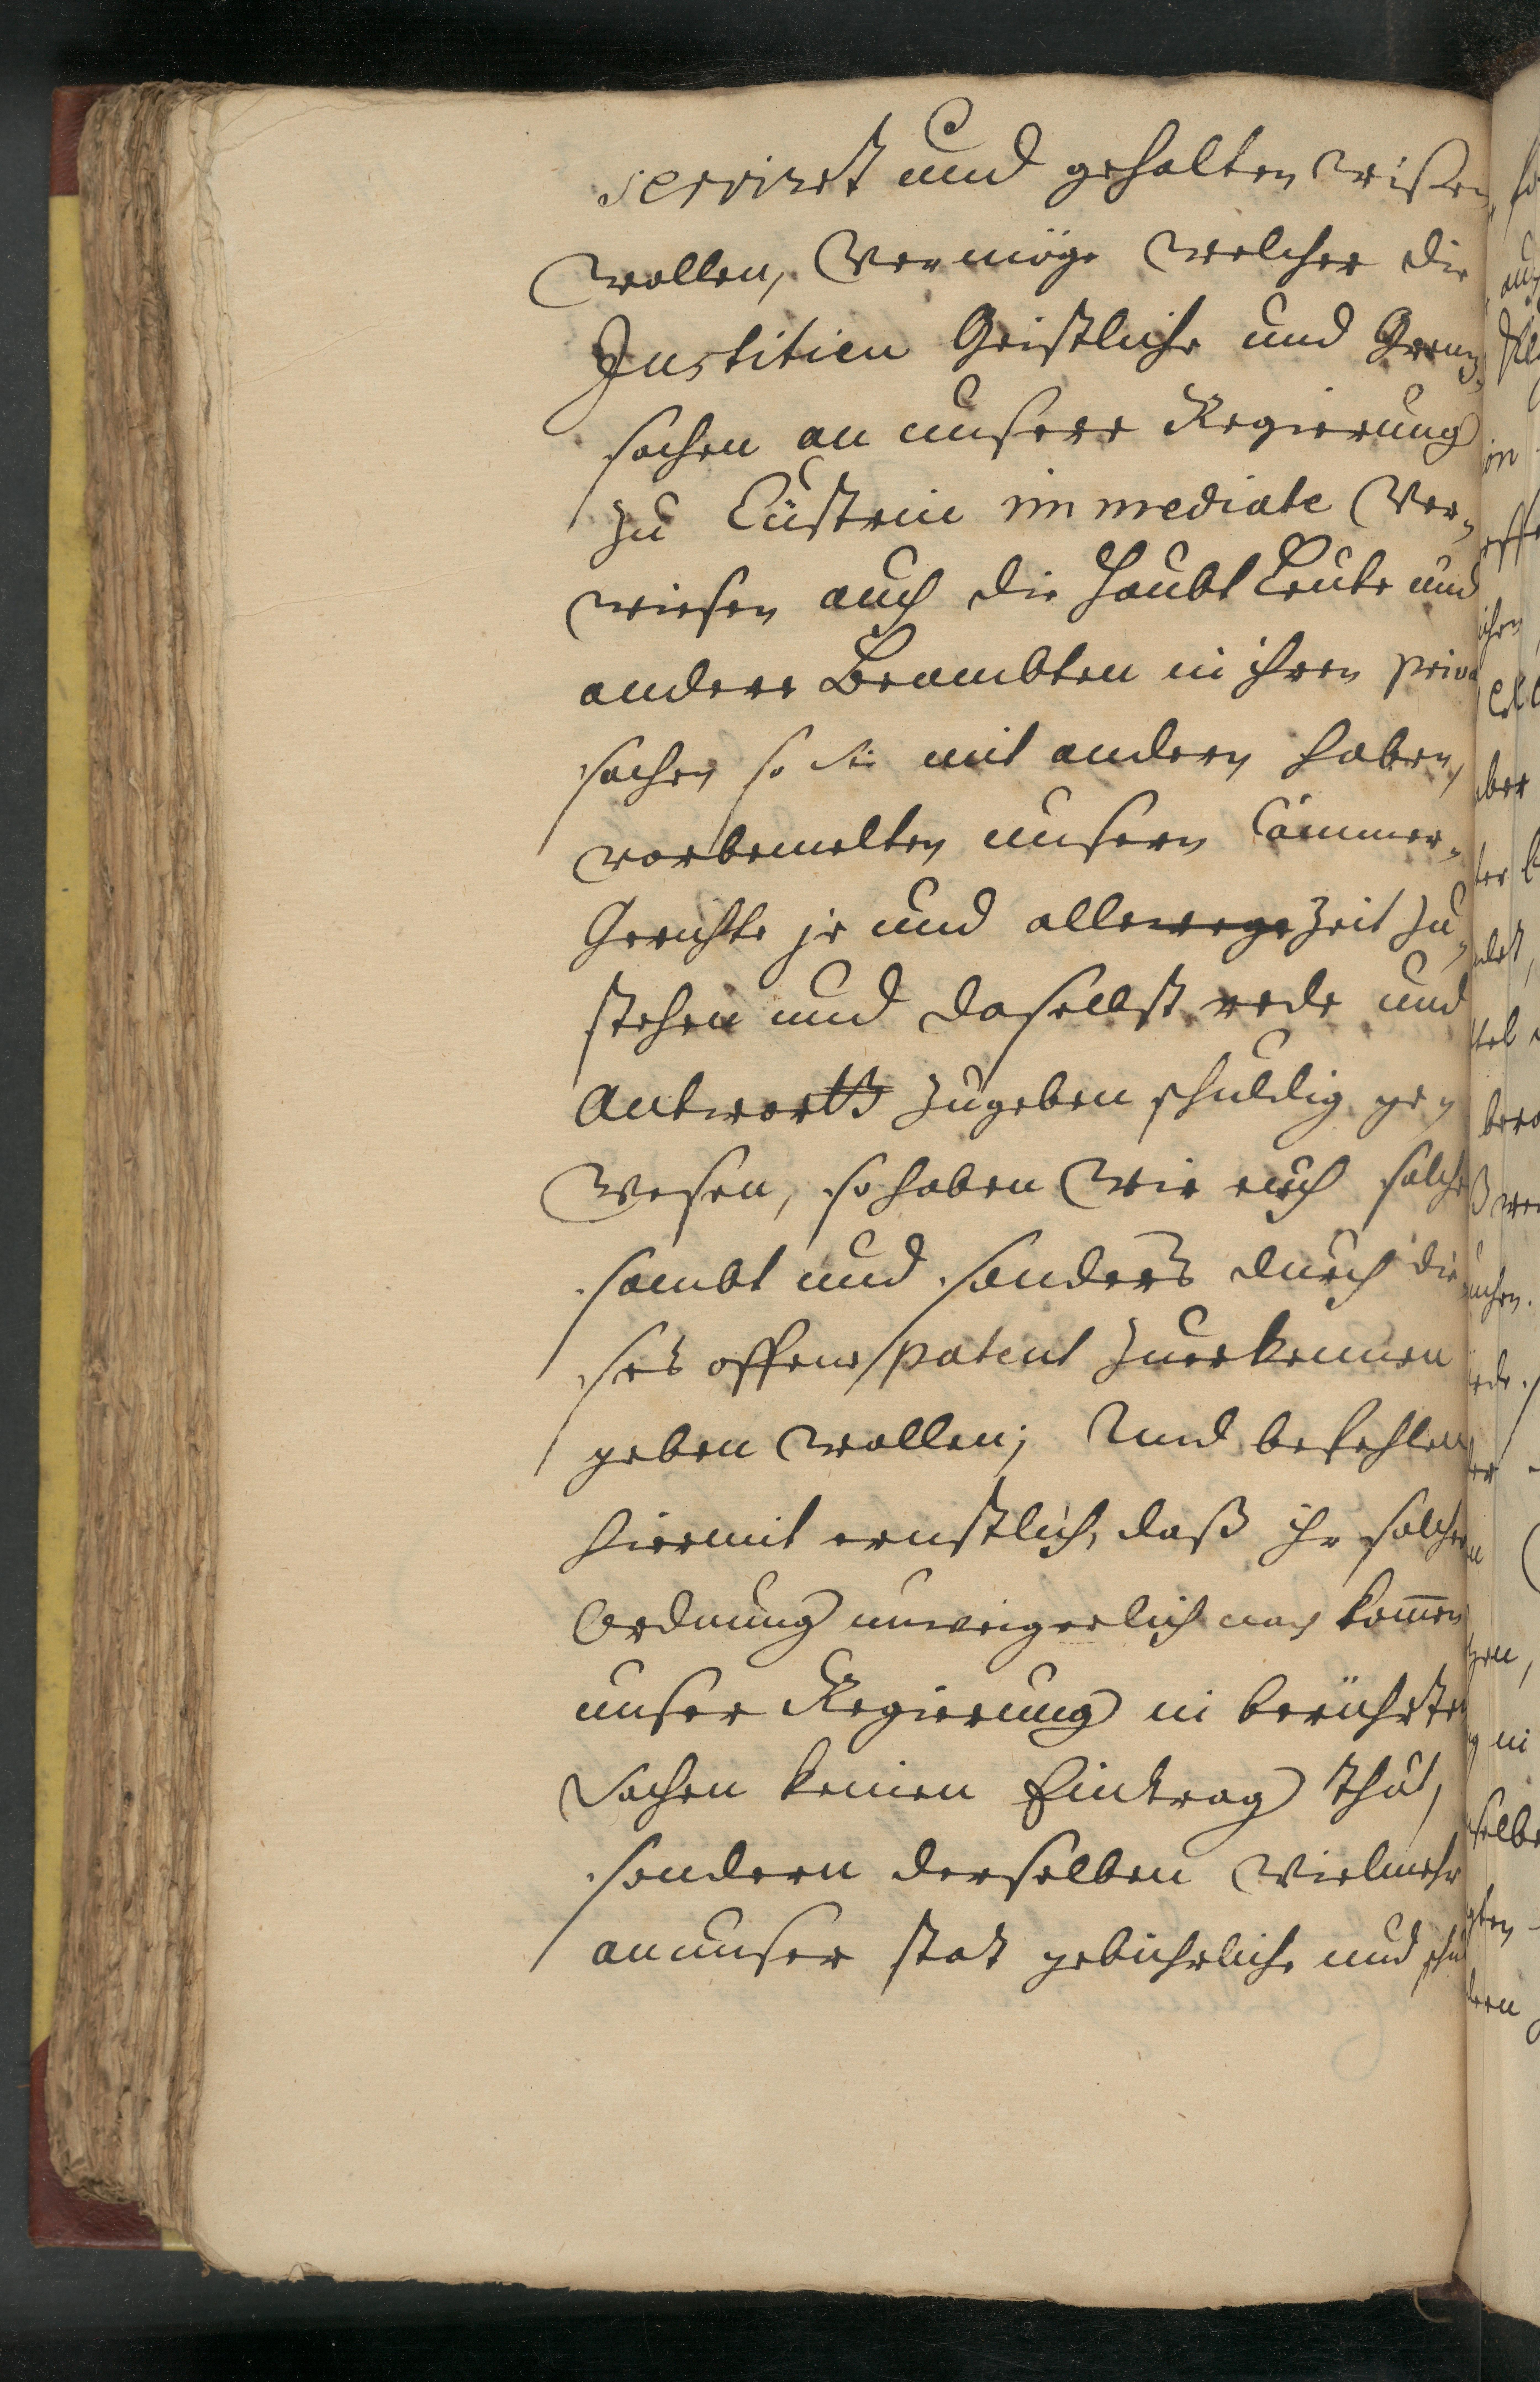 serviret und gehalten wißen
wollen, Vermöge welcher die
Justitien Geistliche und Grenz„
sachen an unsere Regierung
zu Cüstrin immediate Ver„
wiesen auch die Haubt Leute und
andere Beambten in ihren priva
sachen so sie mit andern haben,
vorbemelten unsern Cammer„
Gerichte je und allewege Zeit zu„
stehen und daselbst rede und
Antwortt zugeben schuldig ge„
wesen, so haben wir euch solche
sambt und sonders durch die
ses offene patent zuerkennen
geben wollen; Und befehlen
hiermit ernstlich, daß ihr solcher
Ordnung unweigerlich nach kom̄en
unser Regierung in berührten
Sachen keinen Eintrag thut,
sondern derselben vielmehr
an unser stat gebührliche und schu